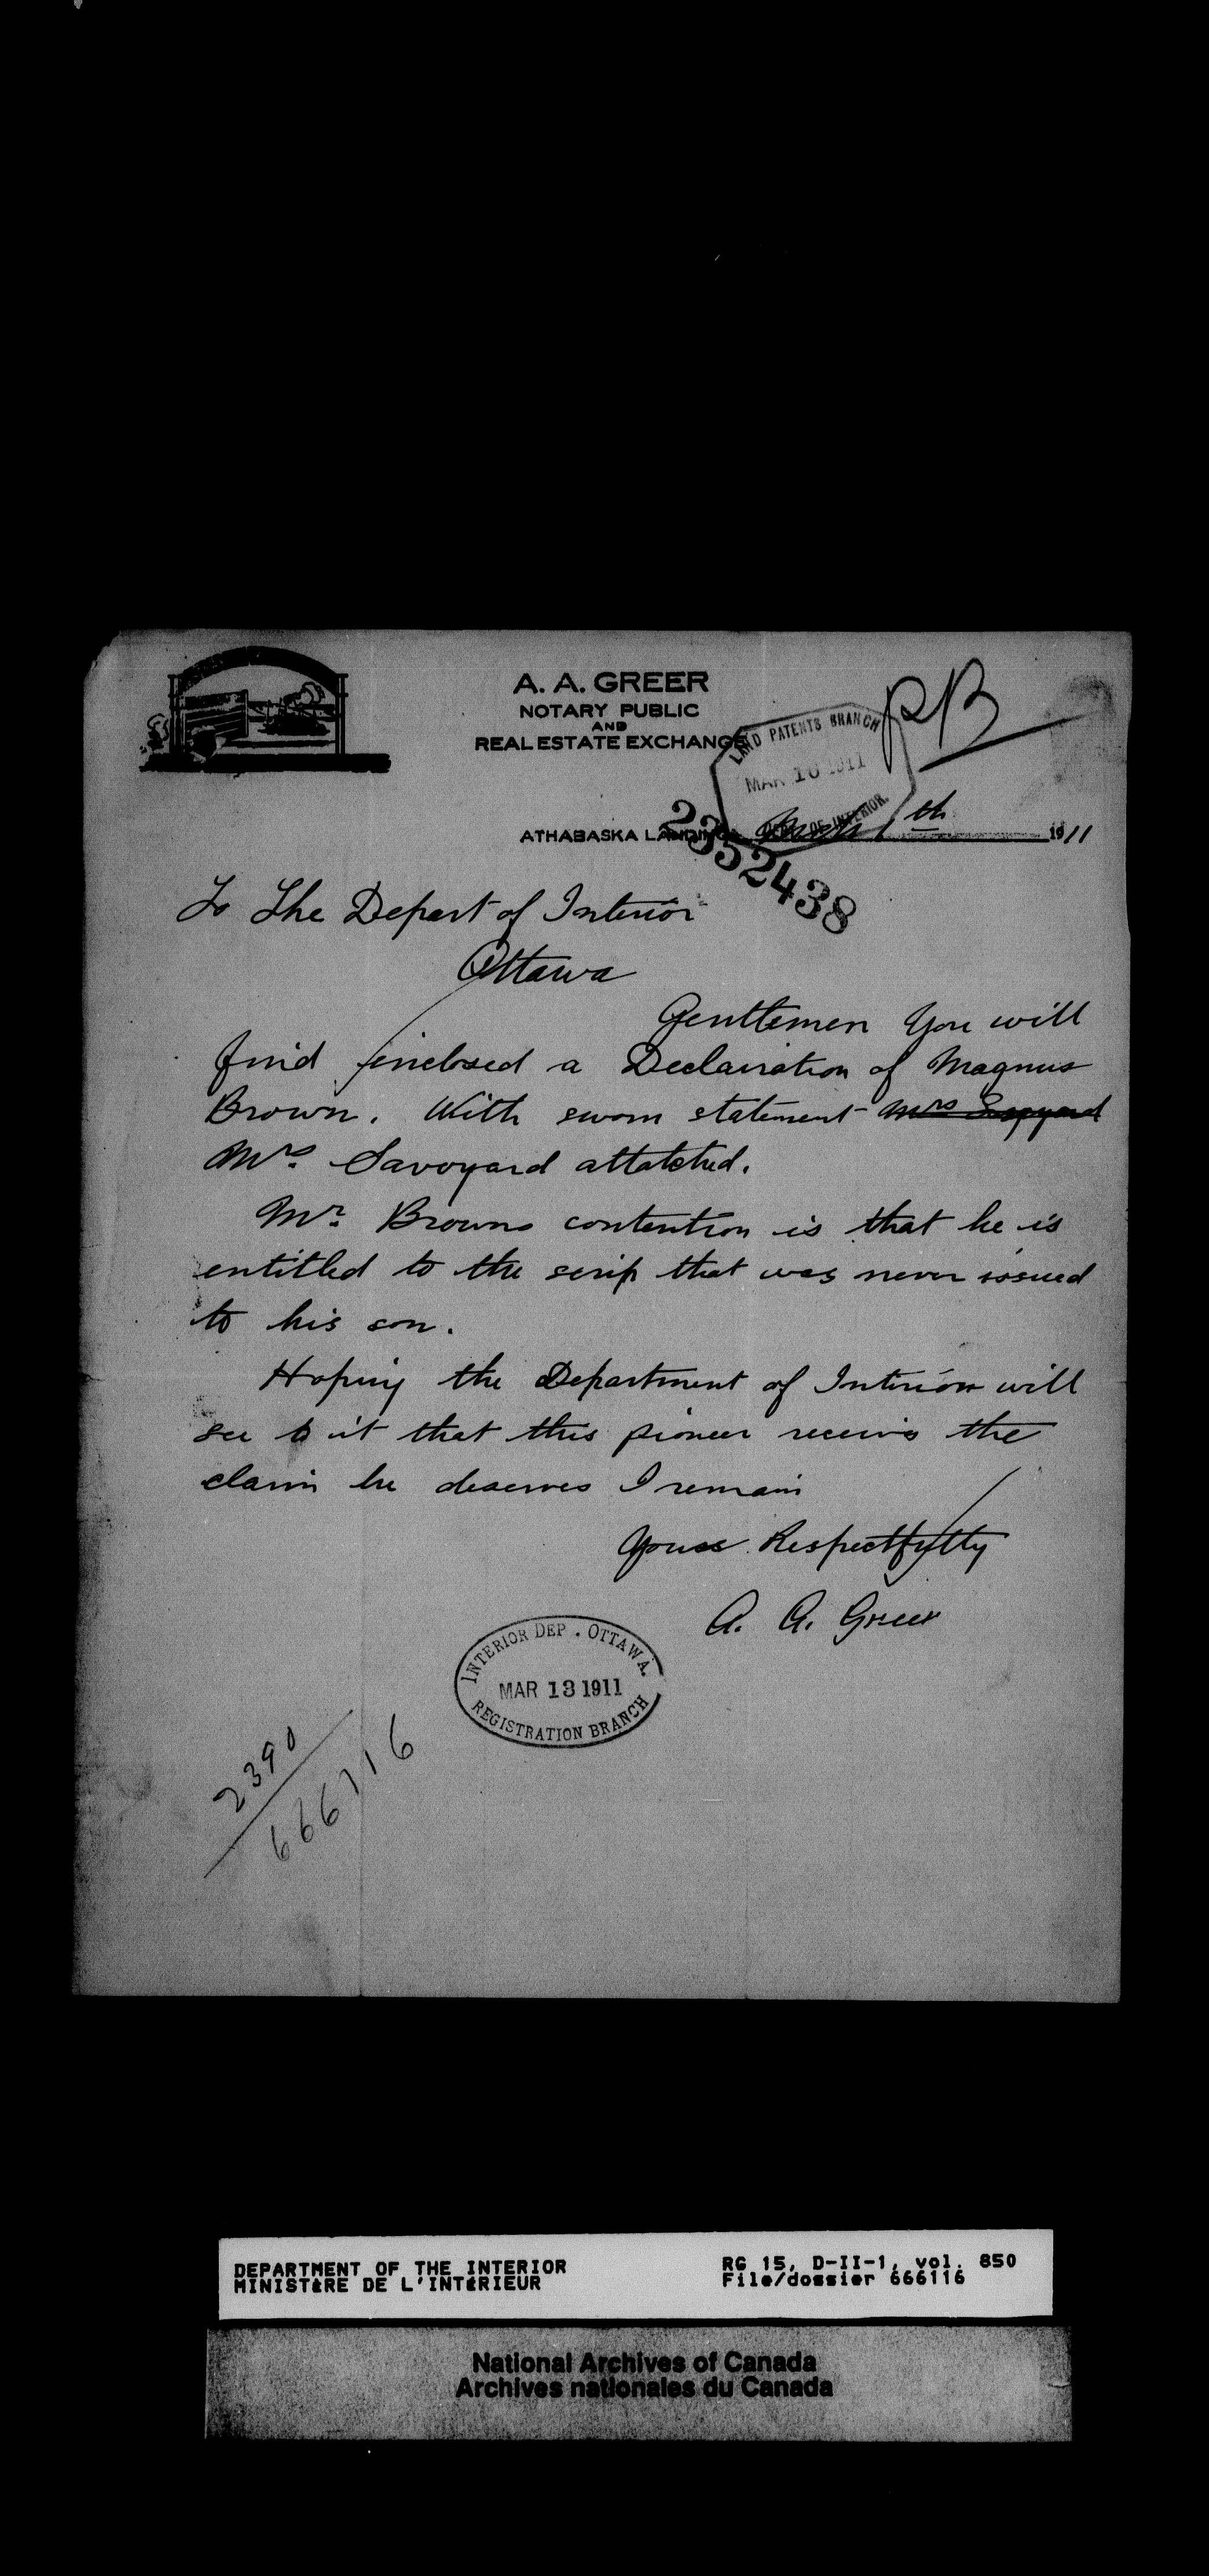 A. A. GREER
NOTARY PUBLIC
AND
REAL ESTATE EXCHANGE
PB
LAND PATENTS BRANCH
MAR 1911
DEPT OF INTERIOR
ATHABASKA LANDING, th 1911
2352438
To The Depart of Interior
Ottawa
Gentlemen You will
find inclosed a Declairation of Magnus
Brown. With sworn statement Mrs
Mrs. Savoyard attatched.
Mr. Browns contention is that he is
entitled to the scrip that was never issued
to his son.
Hoping the Department of Interior will
see to it that this pioneer receive the
claim he deserves I remain
Yours Respectfully
A. A. Greer
INTERIOR DEP. OTTAWA.
MAR 13 1911
REGISTRATION BRANCH
2390
666116
DEPARTMENT OF THE INTERIOR
MINISTÈRE DE L'INTÉRIEUR
RG 15, D-II-1, vol. 850
File/dossier 666116
National Archives of Canada
Archives nationales du Canada